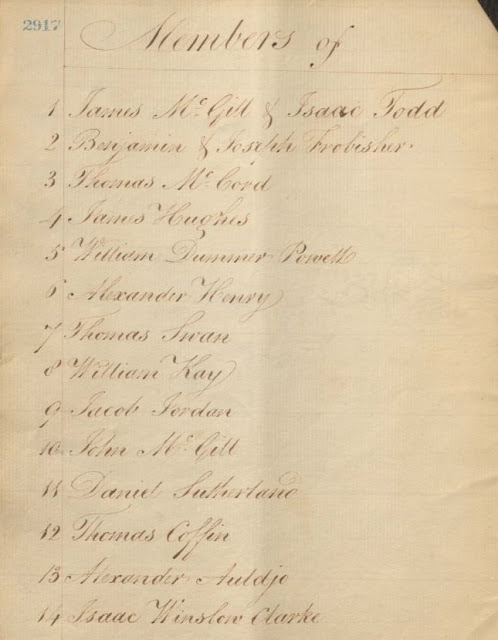 2917
Members of
1 James McGill & Isaac Todd
2 Benjamin & Joseph Frobisher.
3 Thomas McCord
4 James Hughes
5 William Dummer Powell
6 Alexander Henry
7 Thomas Swan
8 William Kay
9 Jacob Jordan
10 John McGill
11 Daniel Sutherland
12 Thomas Coffin
13 Alexander Auldjo
14 Isaac Winslow Clarke